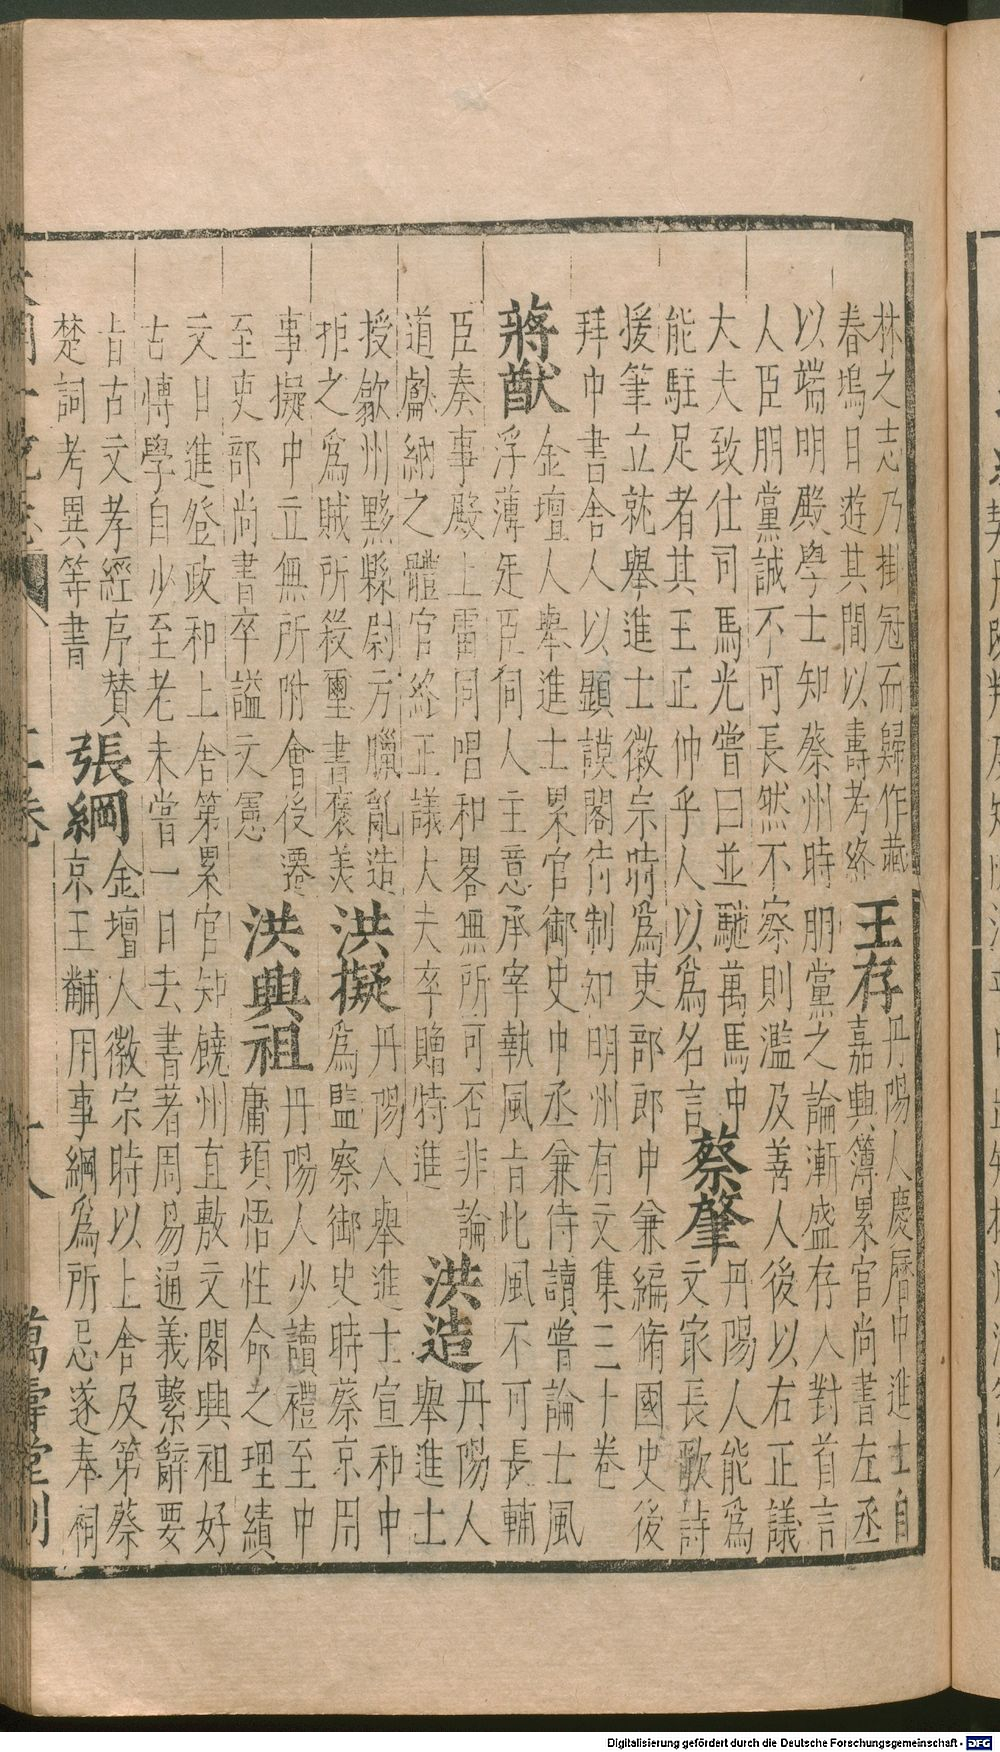 林之志乃掛冠而歸作藏
春塢日遊其間以壽考終
王存
丹陽人慶曆中進士自
嘉興簿累官尚書左丞
以端明殿學士知蔡州時朋黨之論漸盛存人對首言
人臣朋黨誠不可長然不察則濫及善人後以右正議
大夫致仕司馬光嘗曰並馳萬馬中
能駐足者其王正仲乎人以為名言
蔡肇
丹陽人能為
文家長歌詩
援筆立就舉進士徽宗時為吏部郎中兼編脩國史後
拜中書舍人以顯謨閣待制知明州有文集三十卷
蔣猷
金壇人舉進士累官御史中丞兼侍讀嘗論士風
浮薄廷臣伺人主意承宰執風旨此風不可長輔
臣奏事殿上雷同唱和畧無所可否非論
道獻納之體官終正議大夫卒贈特進
洪造
丹陽人
舉進士
授歙州黟縣尉方臘亂造
拒之為賊所殺璽書褒美
洪擬
丹陽人舉進士宣和中
為監察御史時蔡京用
事擬中立無所附會後遷
至吏部尚書卒謚文憲
洪興祖
丹陽人少讀禮至中
庸頓悟性命之理績
文日進登政和上舍第累官知饒州直敷文閣興祖好
古博學自少至老未嘗一日去書著周易通義繫辭要
旨古文孝經序贊
楚詞考異等書
張綱
金壇人徽宗時以上舍及第蔡
京王黼用事綱為所忌遂奉祠
萬壽堂刊
Digitalisierung gefördert durch die Deutsche Forschungsgemeinschaft - DFG